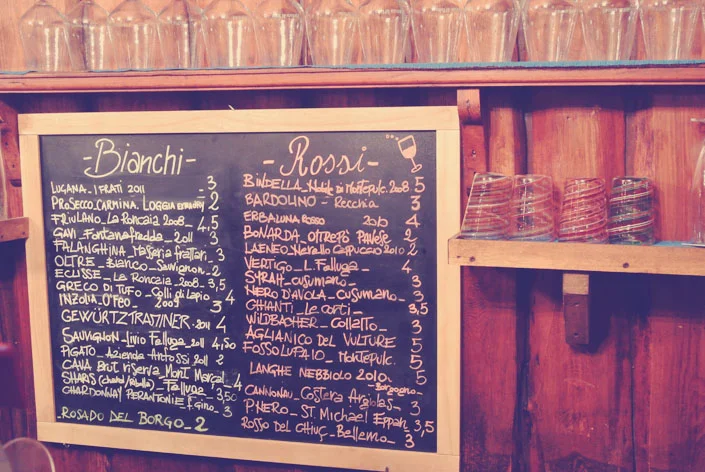 -Bianchi-
LUGANA_I FRATI 2011 _ 3
PROSECCO_CARMINA_LOGGIA 2
FRIULANO_La Roncaia 2008_ 4,5
GAVI_Fontanafredda_2011 3
FALANGHINA_Masseria frattari_ 3
OLTRE_Bianco_Sauvignon_ 2
ECLISSE_La Roncaia 2008_ 3,5
GRECO DI TUFO_Colli di Lapio_ 4
INZOLIA_O'Feo_ 2009 3
GEWÜRTZTRAMINER_2011 4
SAUVIGNON_Livio Felluga_2011 4,50
PIGATO_Azienda Anfossi 2011 2
CAVA Brut riserva_Mont Marcal_
SHARIS _Felluga_ 4
CHARDONNAY PERANTONIE F.Gino_ 3
_ROSADO DEL BORGO_2
-Rossi-
BINDELLA_Nobile di Montepulc. 2008 5
BARDOLINO_Recchia 3
ERBALUNA ROSSO 2010 4
BONARDA OLTREPÒ PAVESE 2
LAENEO_Nerello Cappuccio 2010 2
VERTIGO_L.Felluga_ 4
SYRAH_Cusumano_ 3
NERO D'AVOLA_Cusumano_ 3
CHIANTI_Le Corti_ 3,5
WILDBACHER_Collalto_ 3
AGLIANICO DEL VULTURE 5
FOSSOLUPAIO_Montepulc. 5
LANGHE NEBBIOLO 2010_ 5
CANNONAU_Costera Argiolas_ 3
P.NERO_ST Michael Eppan_ 3,5
ROSSO DEL CHIUS_Bellemo_ 3